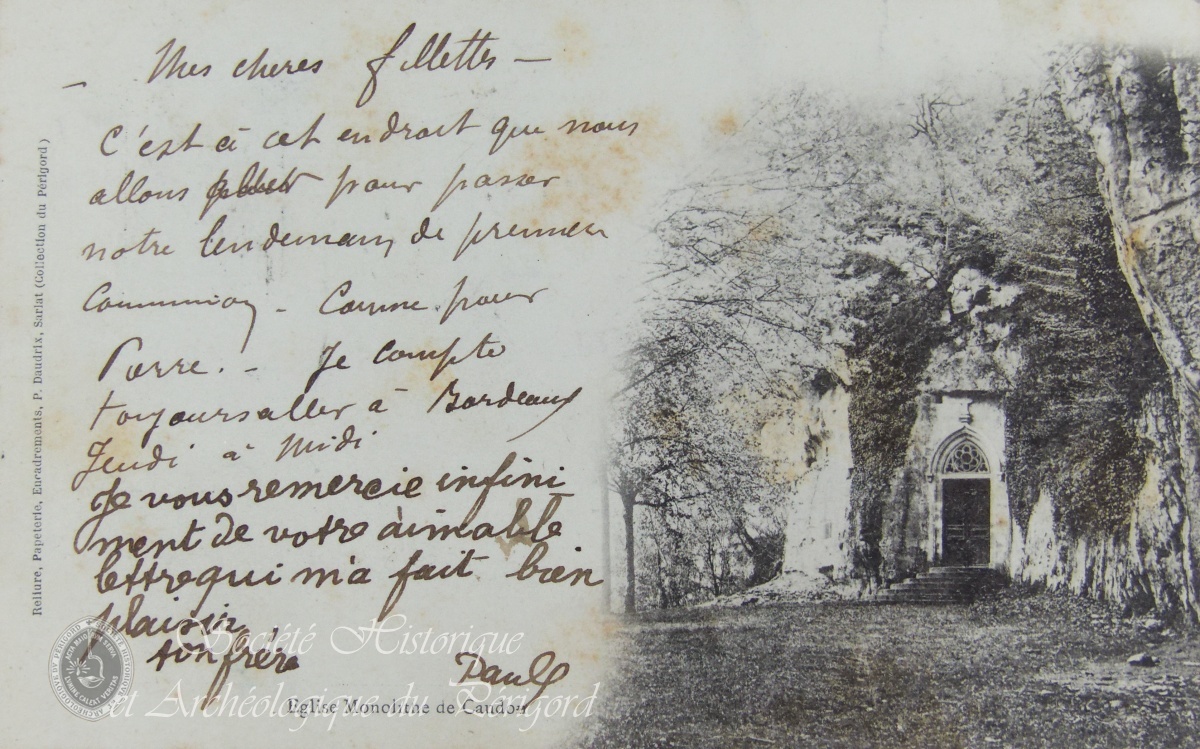 — Mes cheres fillettes —
C'est à cet endroit que nous
allons pour passer
notre lendemain de premiere
Communion - Comme pour
Pierre. - Je compte
toujours aller à Bordeaux
Jeudi à Midi
Je vous remercie infini
ment de votre aimable
lettre qui m'a fait bien
plaisir
ton frère Paul
Eglise Monolithe de Caudon
Reliure, Papeterie, Encadrements, P. Daudrix, Sarlat (Collection du Périgord)
Société Historique
et Archéologique du Périgord